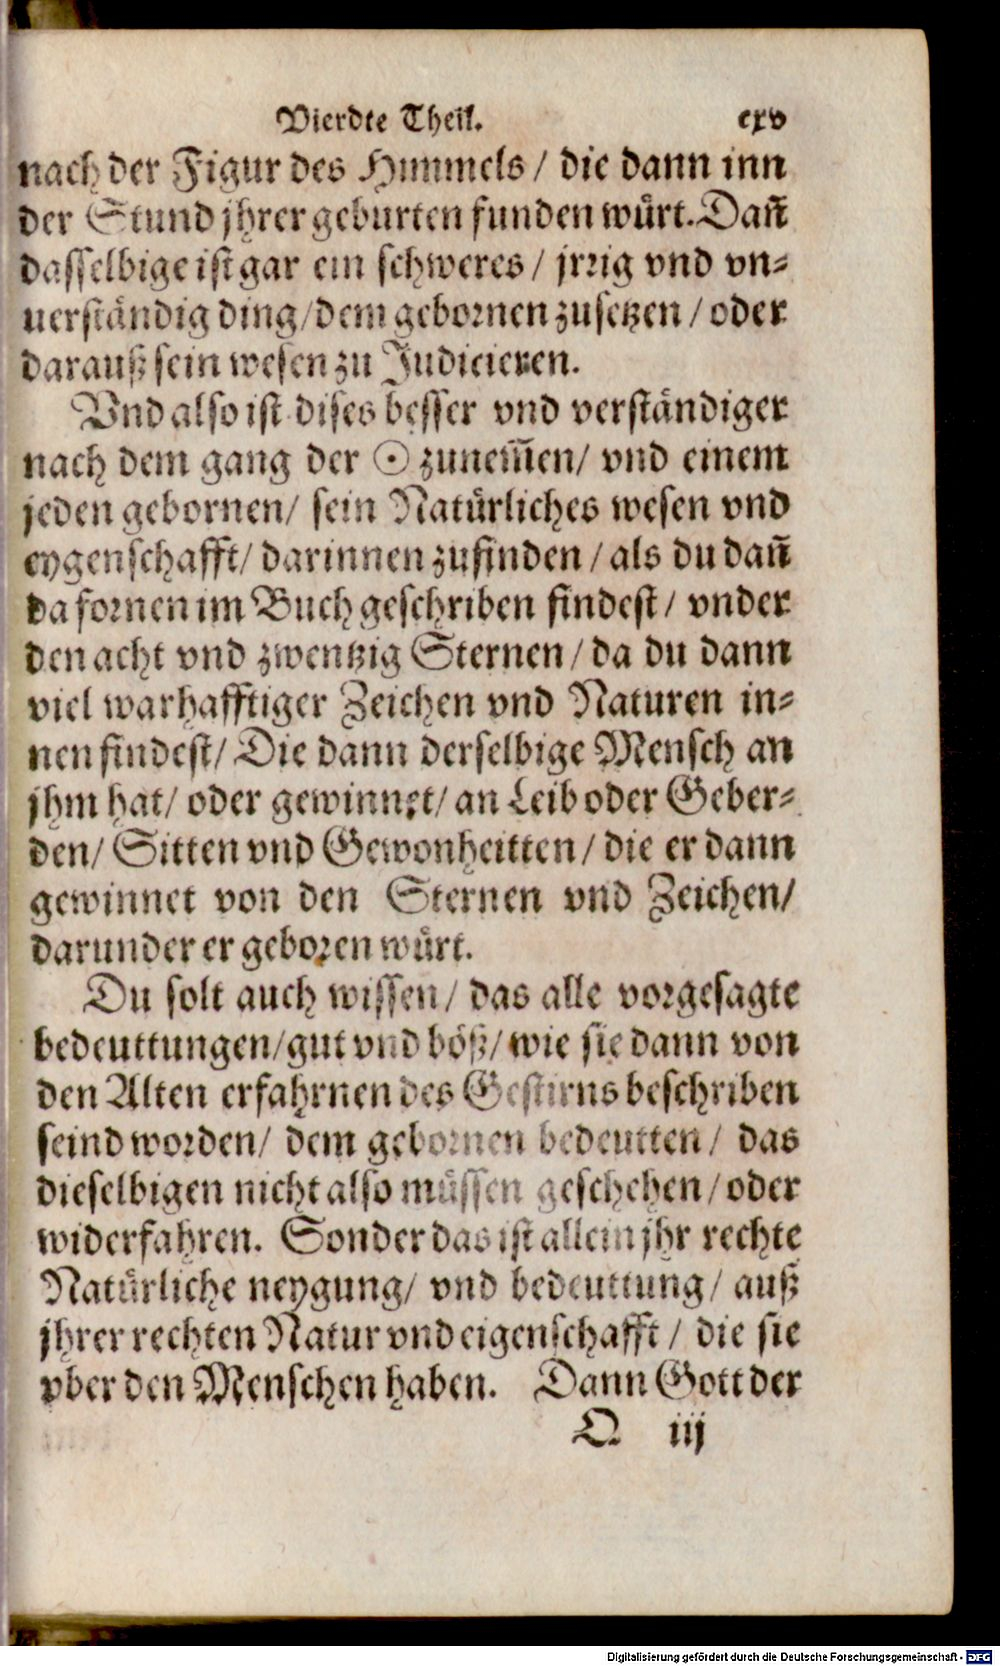 Vierdte Theil. cxv
nach der Figur des Himmels / die dann inn
der Stund jhrer geburten funden würt. Dañ
dasselbige ist gar ein schweres / jrrig vnd vn⸗
uerständig ding / dem gebornen zusetzen / oder
darauß sein wesen zu Judicieren.
Vnd also ist dises besser vnd verständiger
nach dem gang der ☉ zunem̃en / vnd einem
jeden gebornen / sein Natürliches wesen vnd
eygenschafft / darinnen zufinden / als du dañ
da fornen im Buch geschriben findest / vnder
den acht vnd zwentzig Sternen / da du dann
viel warhafftiger Zeichen vnd Naturen in⸗
nen findest / Die dann derselbige Mensch an
jhm hat / oder gewinnet / an Leib oder Geber⸗
den / Sitten vnd Gewonheitten / die er dann
gewinnet von den Sternen vnd Zeichen /
darunder er geboren würt.
Du solt auch wissen / das alle vorgesagte
bedeuttungen / gut vnd böß / wie sie dann von
den Alten erfahrnen des Gestirns beschriben
seind worden / dem gebornen bedeutten / das
dieselbigen nicht also müssen geschehen / oder
widerfahren. Sonder das ist allein jhr rechte
Natürliche neygung / vnd bedeuttung / auß
jhrer rechten Natur vnd eigenschafft / die sie
vber den Menschen haben. Dann Gott der
Q iij
Digitalisierung gefördert durch die Deutsche Forschungsgemeinschaft - DFG